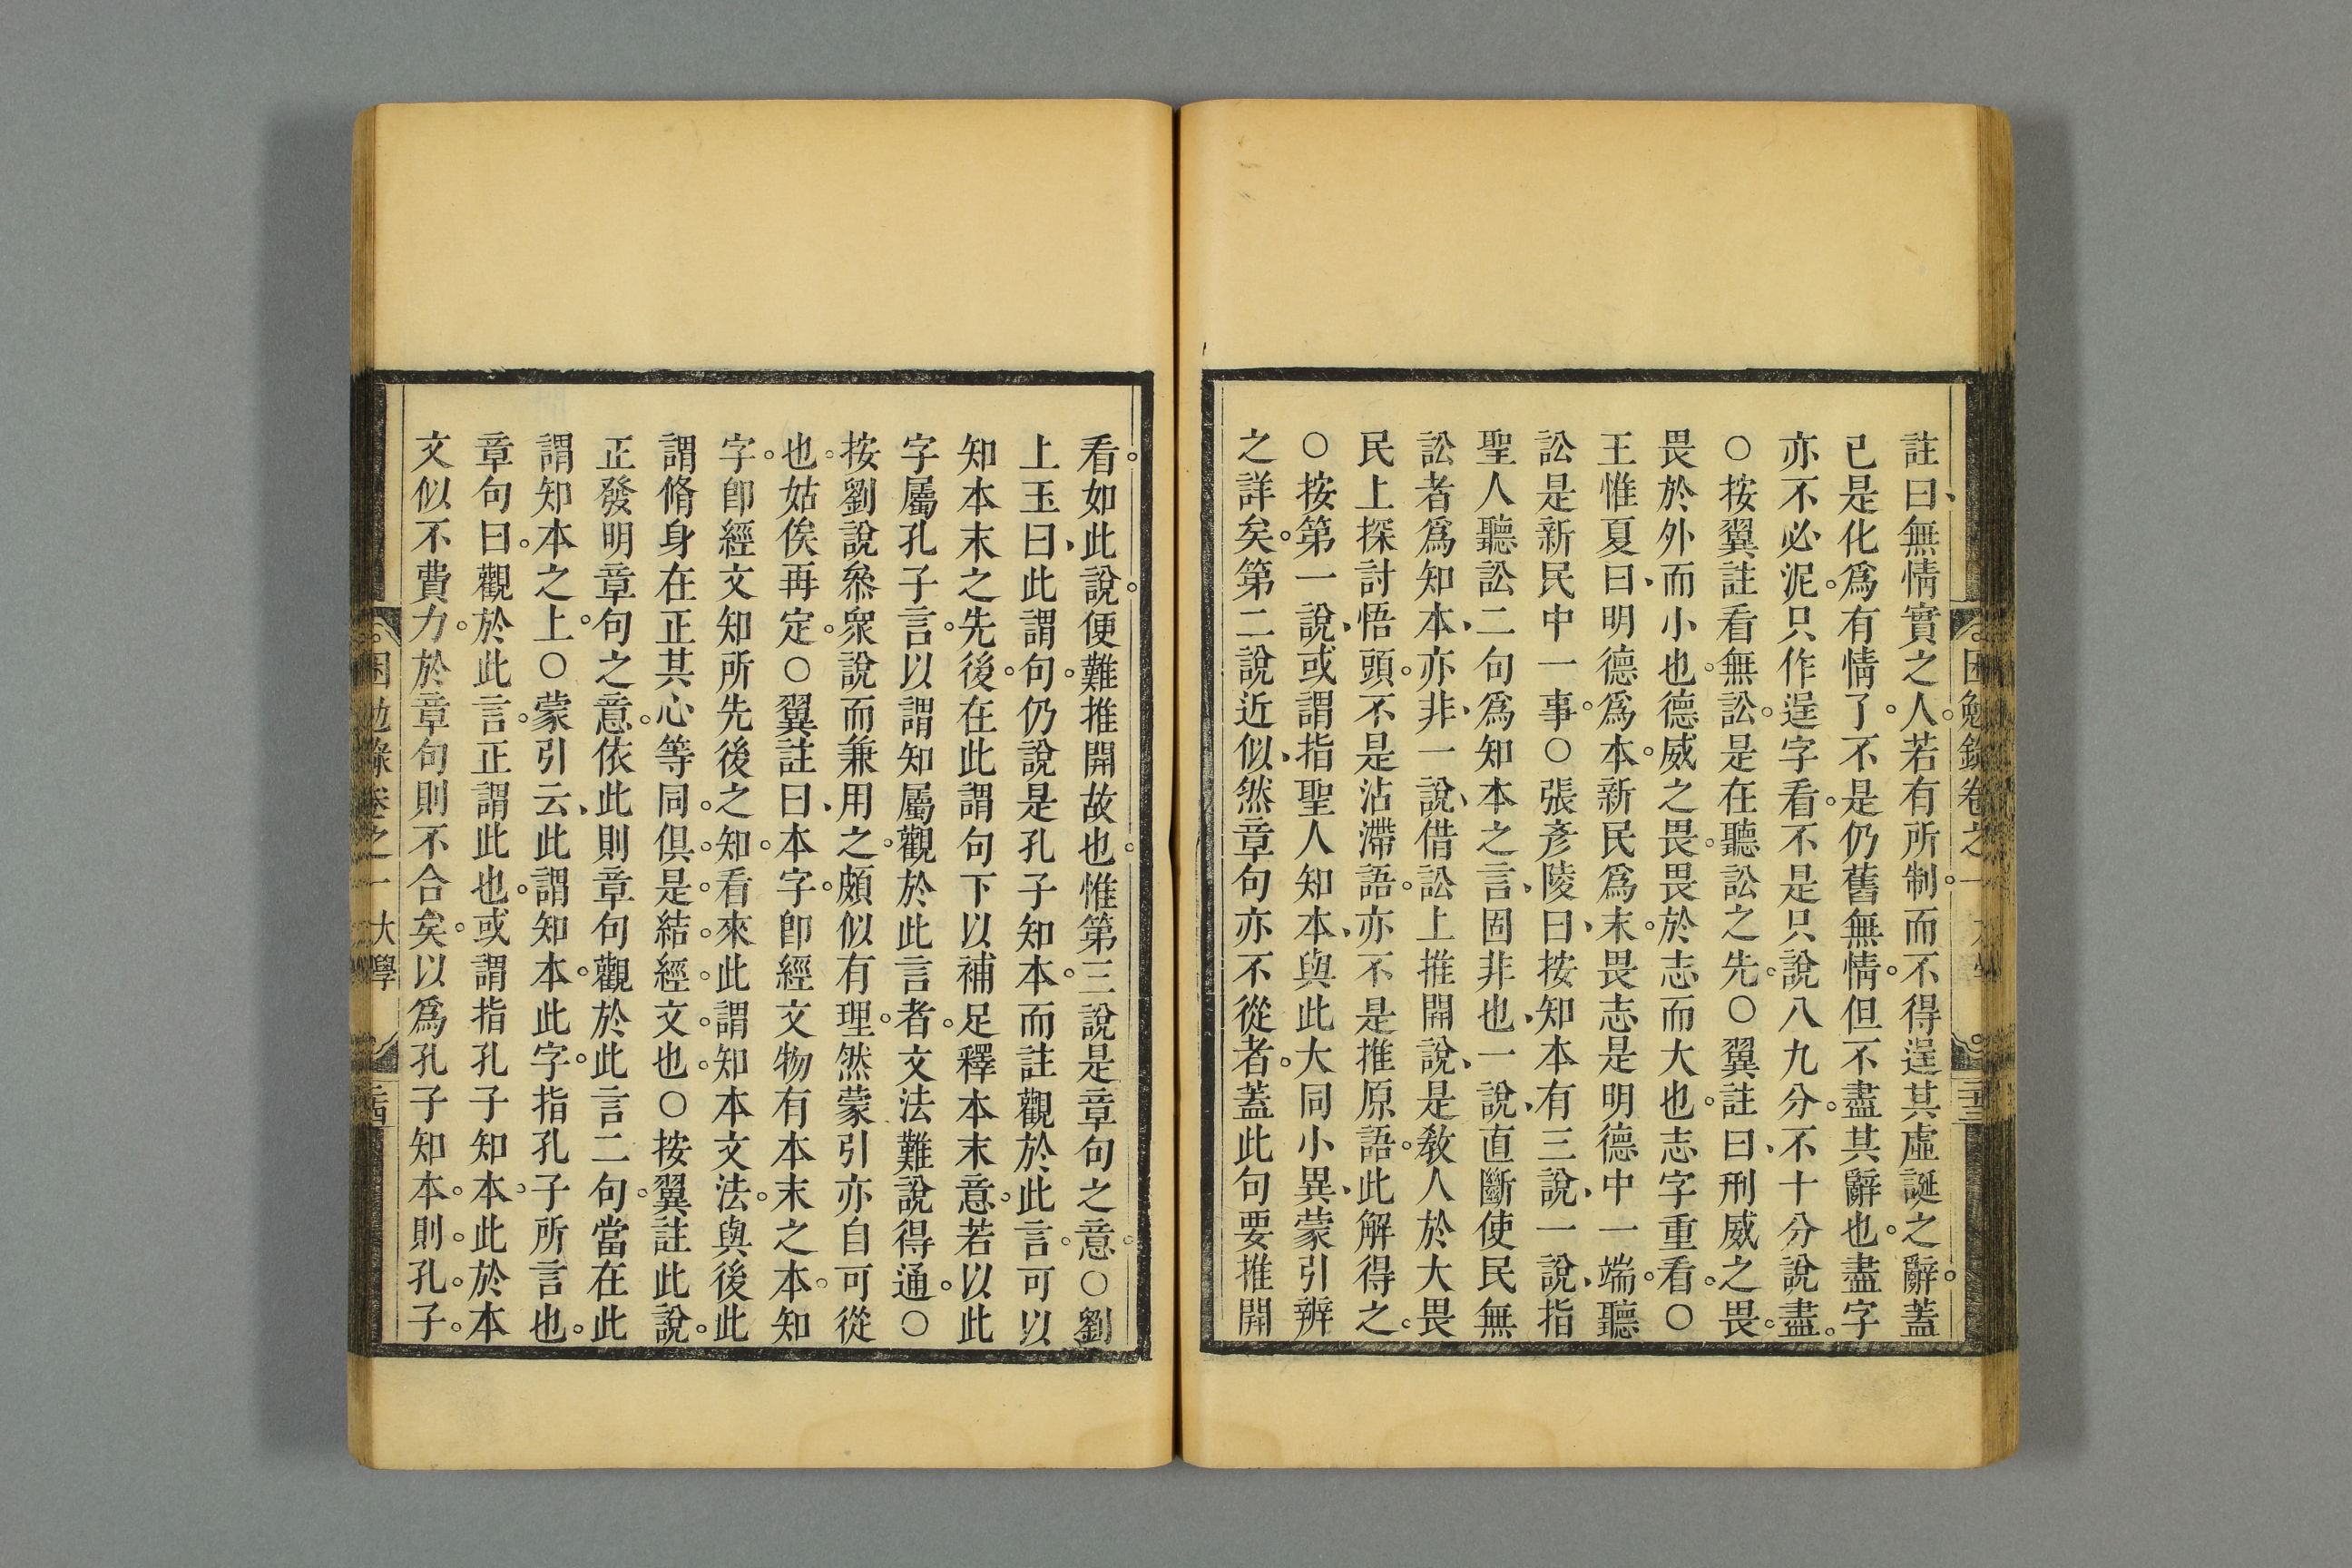 註曰、無情實之人。若有所制。而不得逞其虛誕之辭。蓋
已是化爲有情了。不是仍舊無情。但不盡其辭也。盡字
亦不必泥。只作逞字看。不是只說八九分。不十分說盡。
○按翼註看無訟。是在聽訟之先。○翼註曰、刑威之畏。
畏於外而小也。德威之畏。畏於志而大也。志字重看。○
王惟夏曰、明德爲本。新民爲末。畏志是明德中一端。聽
訟是新民中一事。○張彥陵曰、按知本有三說、一說、指
聖人聽訟二句爲知本之言、固非也、一說、直斷使民無
訟者爲知本、亦非、一說、借訟上推開說、是敎人於大畏
民上探討悟頭。不是沾滯語。亦不是推原語。此解得之。
○按第一說、或謂指聖人知本、與此大同小異、蒙引辨
之詳矣。第二說近似、然章句亦不從者。蓋此句要推開
困勉錄卷之一
二十三
看。如此說。便難推開故也。惟第三說是章句之意。○劉
上玉曰、此謂句。仍說是孔子知本。而註觀於此言。可以
知本末之先後。在此謂句下以補足釋本末意。若以此
字屬孔子言。以謂知屬觀於此言者。文法難說得通。○
按劉說叅衆說而兼用之。頗似有理。然蒙引亦自可從
也。姑俟再定。○翼註曰、本字。卽經文物有本末之本。知
字。卽經文知所先後之知。看來此謂知本文法。與後此
謂脩身在正其心等同。俱。是。結。經。文。也。○按翼註此說。
正發明章句之意。依此則章句觀於此言二句。當在此
謂知本之上。○蒙引云、此謂知本。此字。指孔子所言也。
章句曰。觀於此言。正謂此也。或謂指孔子知本、此於本
文似不費力。於章句則不合矣。以爲孔子知本。則。孔。子。
困勉錄卷之一
大學
二十四